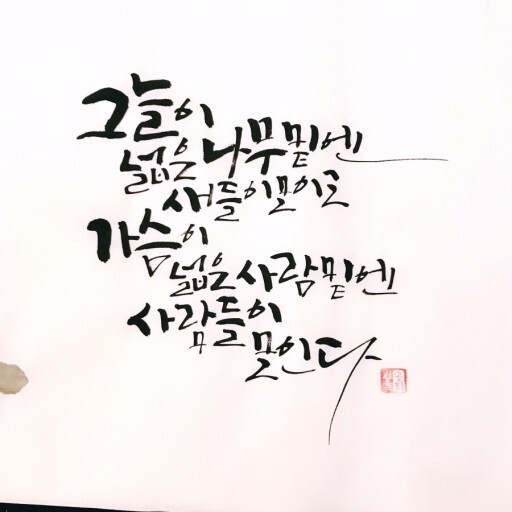 그늘이
넓은 나무 밑엔
새들이 모이고
가슴이
넓은 사람 밑엔
사람들이
모인다